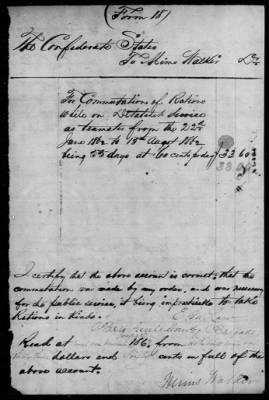 (Form 15)
The Confederate States
To Mims Walker Dr
For Commutation of Rations
while on Detatched service
as teamster from the 22nd
June 1862 to 15th Augst 1862
being 55 days at 60 cents per day 33.60
33
I certify that the above account is correct; that the
commutation was made by my order, and was necessary
for the public service, it being impracticable to take
Rations in kind.
Recd at 186, from
dollars and cents in full of the
above account.
Mims Walker